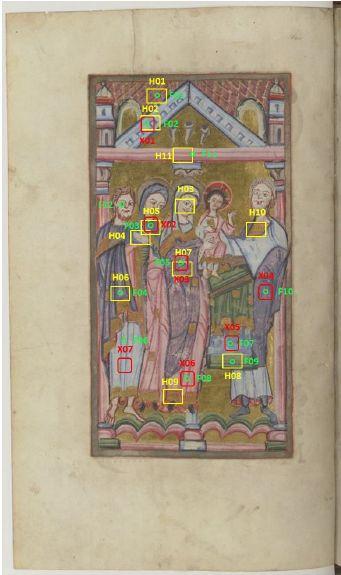 H01
F01
H02
F02
X01
H11
F11
H03
F12
H05
F03
X02
H10
H04
H07
F05
X03
H06
F04
X04
F10
X05
F06
F07
X07
F09
H08
X06
F08
H09